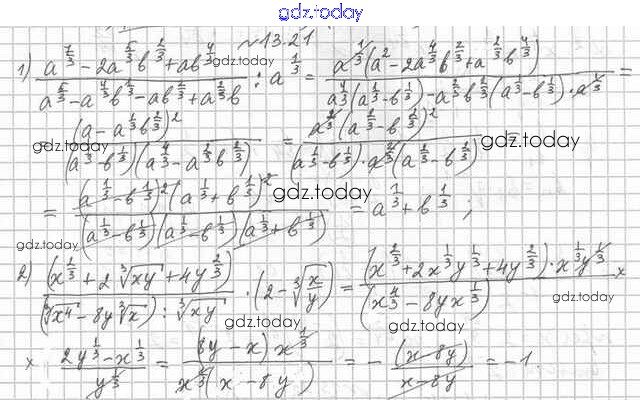 gdz.today
№13.21
1) (a^{7/3} - 2a^{5/3}b^{2/3} + ab^{4/3}) / (a^{5/3} - a^{4/3}b^{1/3} - ab^{2/3} + a^{2/3}b) : a^{1/3} = a^{1/3}(a^2 - 2a^{4/3}b^{2/3} + a^{2/3}b^{4/3}) / (a^{4/3}(a^{1/3} - b^{1/3}) - a^{2/3}b^{2/3}(a^{1/3} - b^{1/3}) · a^{1/3}) =
gdz.today
(a - a^{1/3}b^{2/3})^2 / ((a^{1/3} - b^{1/3})(a^{4/3} - a^{2/3}b^{2/3})) = a^{2/3}(a^{2/3} - b^{2/3})^2 / ((a^{1/3} - b^{1/3}) · a^{2/3}(a^{2/3} - b^{2/3})) =
gdz.today gdz.today
= (a^{1/3} - b^{1/3})^2 (a^{1/3} + b^{1/3})^2 / ((a^{1/3} - b^{1/3})(a^{1/3} - b^{1/3})(a^{1/3} + b^{1/3})) = a^{1/3} + b^{1/3};
gdz.today
gdz.today
2) (x^{2/3} + 2∛xy + 4y^{2/3}) / ((∛x⁴ - 8y∛x) : ∛xy) · (2 - ∛(x/y)) = (x^{2/3} + 2x^{1/3}y^{1/3} + 4y^{2/3}) · x^{1/3}y^{1/3} / (x^{4/3} - 8yx^{1/3}) ×
gdz.today gdz.today
gdz.today gdz.today
× (2y^{1/3} - x^{1/3}) / y^{1/3} = (8y - x) x^{1/3} / (x^{1/3}(x - 8y)) = - (x - 8y) / (x - 8y) = -1.
gdz.today